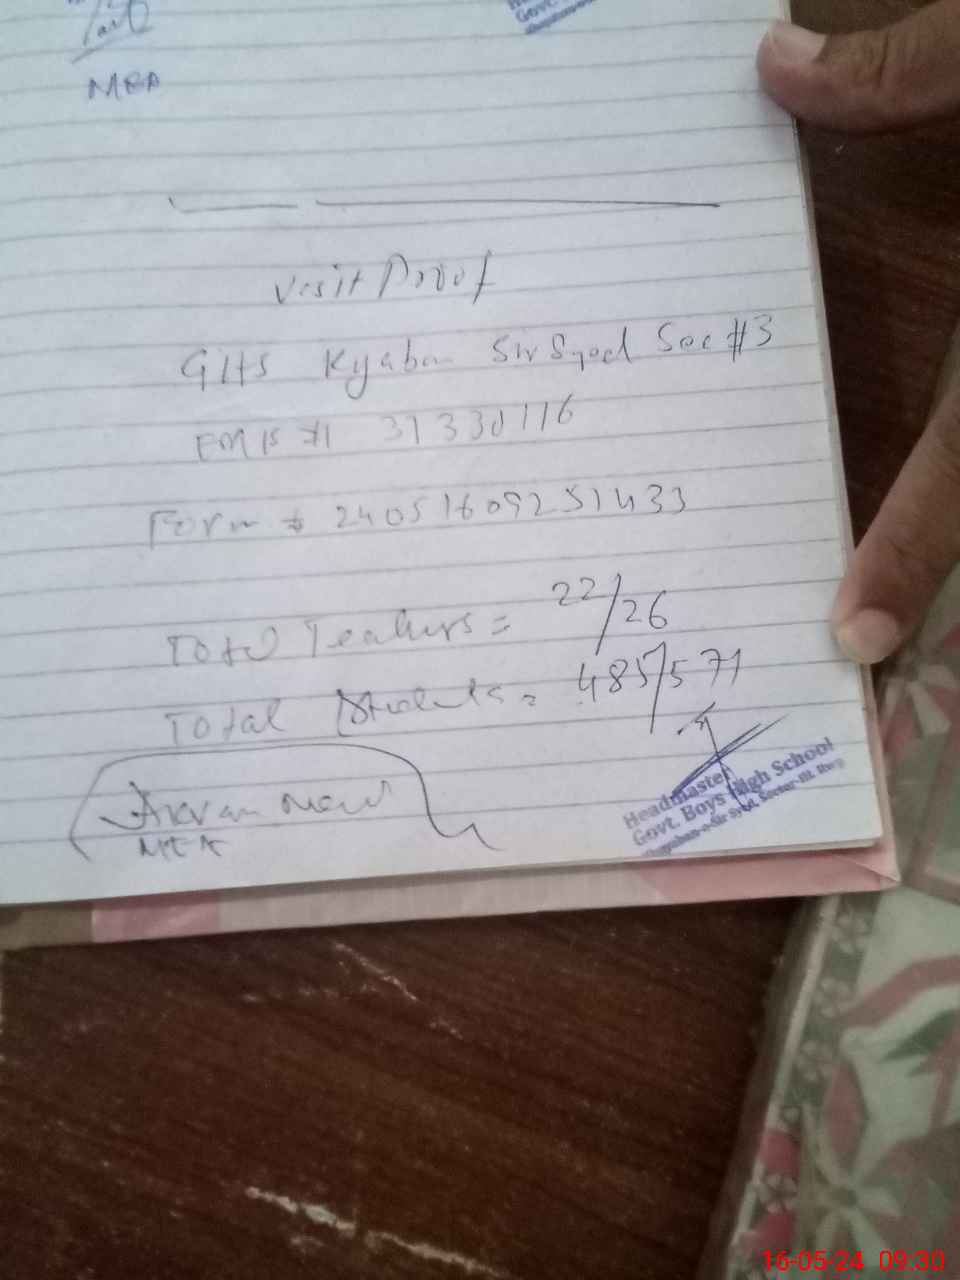 MEA
Visit Proof
GHS Kyaban Sir Syed Sec #3
EMIS # 31330116
Form # 24051609251433
Total Teachers = 22/26
Total Students = 485/571
MEA
Headmaster
Govt. Boys High School
Sector-III
16-05-24 09:30